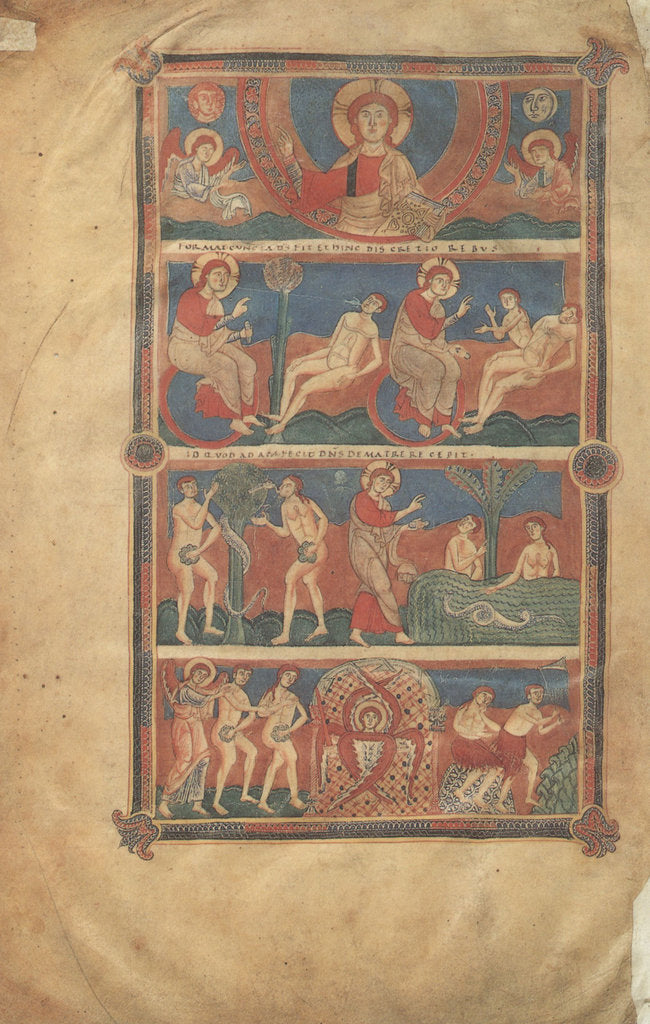 FORMAT CUNCTA DS FIT ET HINC DISCRETIO REBUS
ID QVOD ADAM FECIT DNS DE MATRE RECEPIT·